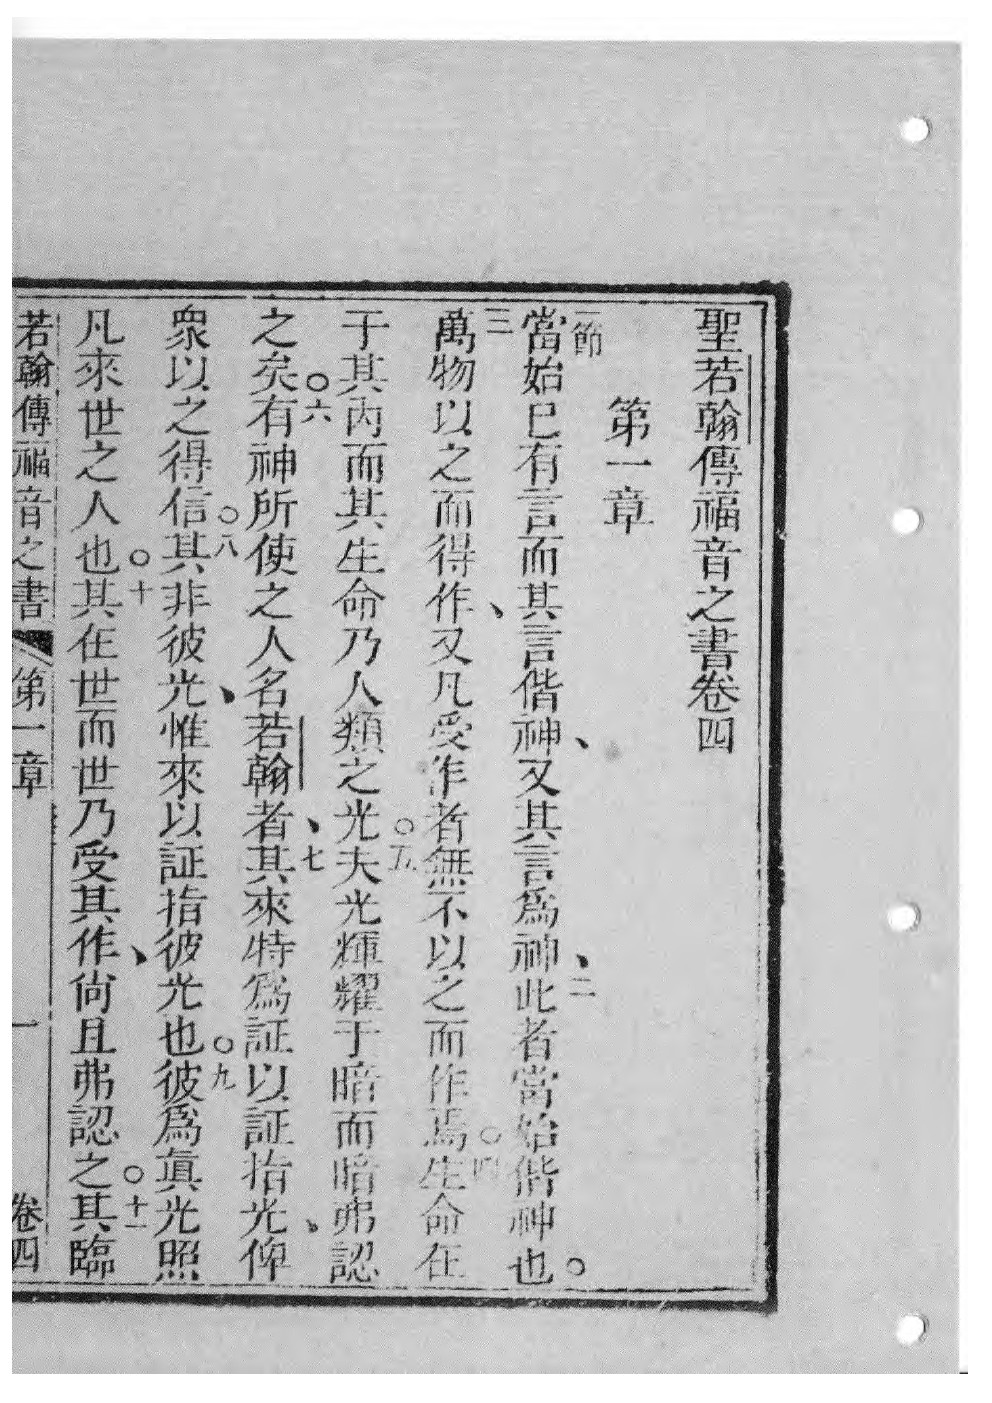 聖若翰傳福音之書卷四
第一章
一節當始已有言而其言偕神、又其言爲神、二此者當始偕神也。
三萬物以之而得作、又凡受作者無不以之而作焉。四生命在
于其內而其生命乃人類之光。五夫光輝耀于暗而暗弗認
之矣。六有神所使之人名若翰者、七其來特爲証以証指光、俾
衆以之得信。八其非彼光、惟來以証指彼光也。九彼爲眞光照
凡來世之人也。十其在世而世乃受其作、尙且弗認之。十一其臨
若翰傳福音之書 第一章 一 卷四